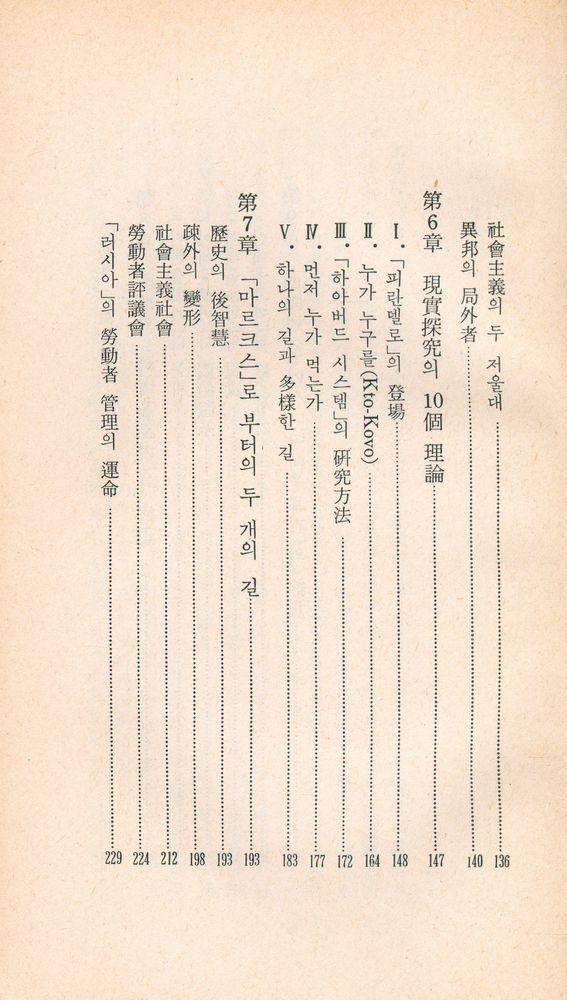 社會主義의 두 저울대 136
異邦의 局外者 140
第6章 現實探究의 10個 理論 147
Ⅰ. 「피란델로」의 登場 148
Ⅱ. 누가 누구를(Kto-Kovo) 164
Ⅲ. 「하아버드 시스템」의 硏究方法 172
Ⅳ. 먼저 누가 먹는가 177
Ⅴ. 하나의 길과 多樣한 길 183
第7章 「마르크스」로 부터의 두 개의 길 193
歷史의 後智慧 193
疎外의 變形 198
社會主義社會 212
勞動者評議會 224
「러시아」의 勞動者 管理의 運命 229